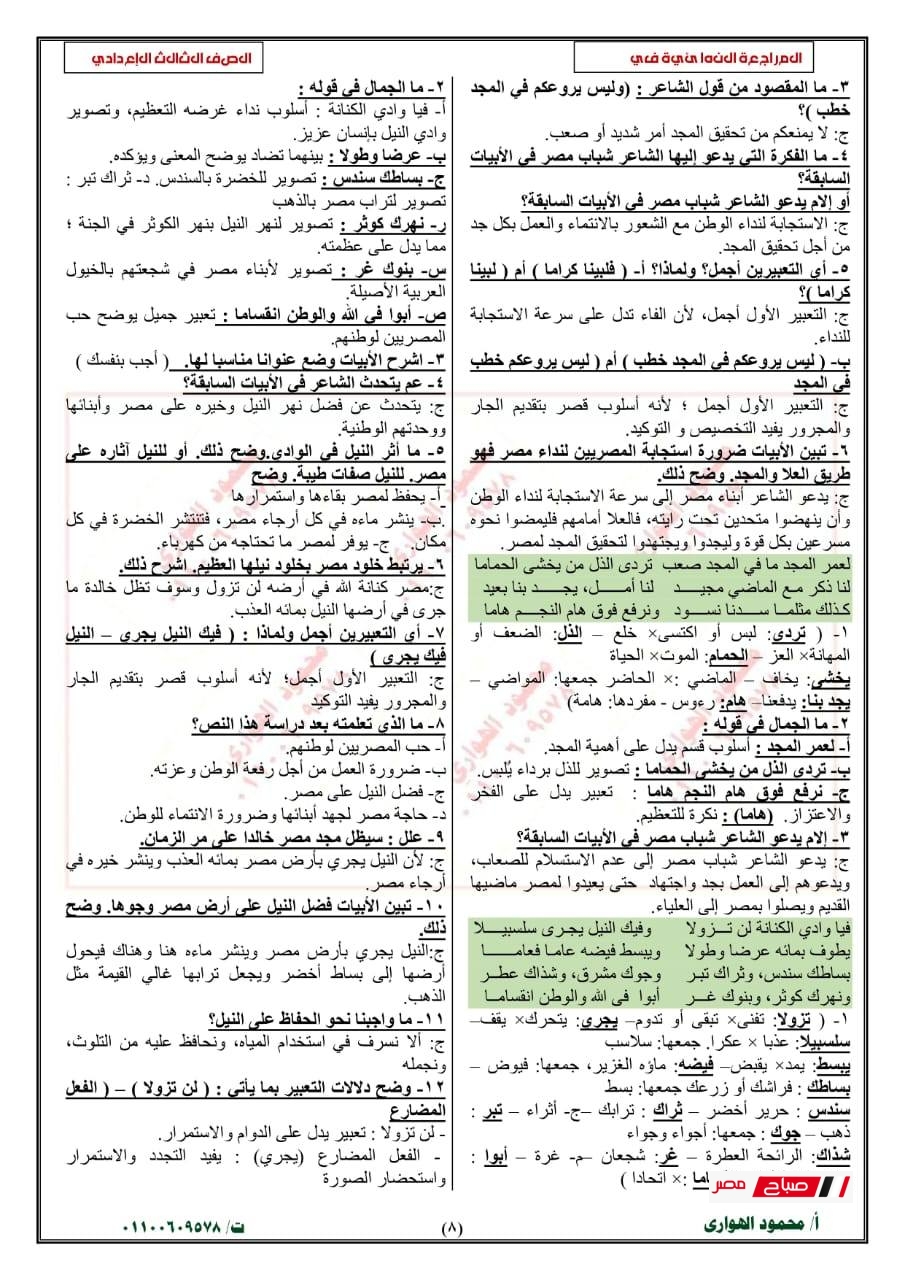 المراجعة النهائية في
الصف الثالث الإعدادي
٣- ما المقصود من قول الشاعر : (وليس يروعكم في المجد
خطب )؟
ج: لا يمنعكم من تحقيق المجد أمر شديد أو صعب.
٤- ما الفكرة التي يدعو إليها الشاعر شباب مصر في الأبيات
السابقة؟
أو إلام يدعو الشاعر شباب مصر في الأبيات السابقة؟
ج: الاستجابة لنداء الوطن مع الشعور بالانتماء والعمل بكل جد
من أجل تحقيق المجد.
٥- أي التعبيرين أجمل؟ ولماذا؟ أ- ( فلبينا كراما ) أم ( لبينا
كراما )؟
ج: التعبير الأول أجمل، لأن الفاء تدل على سرعة الاستجابة
للنداء.
ب- ( ليس يروعكم في المجد خطب ) أم ( ليس يروعكم خطب
في المجد
ج: التعبير الأول أجمل ؛ لأنه أسلوب قصر بتقديم الجار
والمجرور يفيد التخصيص و التوكيد.
٦- تبين الأبيات ضرورة استجابة المصريين لنداء مصر فهو
طريق العلا والمجد. وضح ذلك.
ج: يدعو الشاعر أبناء مصر إلى سرعة الاستجابة لنداء الوطن
وأن ينهضوا متحدين تحت رايته، فالعلا أمامهم فليمضوا نحوه
مسرعين بكل قوة وليجدوا ويجتهدوا لتحقيق المجد لمصر.
لعمر المجد ما في المجد صعب تردى الذل من يخشى الحماما
لنا ذكر مع الماضي مجيد لنا أمل، يجد بنا بعيد
كذلك مثلما سدنا نسود ونرفع فوق هام النجم هاما
١- ( تردي: لبس أو اكتسى× خلع – الذل: الضعف أو
المهانة× العز – الحمام: الموت× الحياة
يخشي: يخاف – الماضي :× الحاضر جمعها: المواضي –
يجد بنا: يدفعنا– هام: رءوس - مفردها: هامة)
٢- ما الجمال في قوله :
أ- لعمر المجد : أسلوب قسم يدل على أهمية المجد.
ب- تردى الذل من يخشى الحماما : تصوير للذل برداء يُلبس.
ج- نرفع فوق هام النجم هاما : تعبير يدل على الفخر
والاعتزاز. (هاما) : نكرة للتعظيم.
٣- إلام يدعو الشاعر شباب مصر في الأبيات السابقة؟
ج: يدعو الشاعر شباب مصر إلى عدم الاستسلام للصعاب،
ويدعوهم إلى العمل بجد واجتهاد حتى يعيدوا لمصر ماضيها
القديم ويصلوا بمصر إلى العلياء.
فيا وادي الكنانة لن تزولا وفيك النيل يجرى سلسبيلا
يطوف بمائه عرضا وطولا ويبسط فيضه عاما فعاما
بساطك سندس، وثراك تبر وجوك مشرق، وشذاك عطر
ونهرك كوثر، وبنوك غر أبوا فى الله والوطن انقساما
١- ( تزولا: تفنى× تبقى أو تدوم– يجري: يتحرك× يقف–
سلسبيلا: عذبا × عكرا. جمعها: سلاسب
يبسط: يمد× يقبض– فيضه: ماؤه الغزير، جمعها: فيوض –
بساطك : فراشك أو زرعك جمعها: بسط
سندس : حرير أخضر – ثراك : ترابك –ج- أثراء – تبر :
ذهب – جوك : جمعها: أجواء وجواء
شذاك: الرائحة العطرة – غر: شجعان –م- غرة – أبوا :
اما :× اتحادا )
٢- ما الجمال في قوله :
أ- فيا وادي الكنانة : أسلوب نداء غرضه التعظيم، وتصوير
وادي النيل بإنسان عزيز.
ب- عرضا وطولا : بينهما تضاد يوضح المعنى ويؤكده.
ج- بساطك سندس : تصوير للخضرة بالسندس. د- ثراك تبر :
تصوير لتراب مصر بالذهب
ر- نهرك كوثر : تصوير لنهر النيل بنهر الكوثر في الجنة ؛
مما يدل على عظمته.
س- بنوك غر : تصوير لأبناء مصر في شجعتهم بالخيول
العربية الأصيلة.
ص- أبوا في الله والوطن انقساما : تعبير جميل يوضح حب
المصريين لوطنهم.
٣- اشرح الأبيات وضع عنوانا مناسبا لها. ( أجب بنفسك )
٤- عم يتحدث الشاعر في الأبيات السابقة؟
ج: يتحدث عن فضل نهر النيل وخيره على مصر وأبنائها
ووحدتهم الوطنية.
٥- ما أثر النيل في الوادي.وضح ذلك. أو للنيل آثاره على
مصر. للنيل صفات طيبة. وضح
أ- يحفظ لمصر بقاءها واستمرارها
ب- ينشر ماءه في كل أرجاء مصر، فتنتشر الخضرة في كل
مكان. ج- يوفر لمصر ما تحتاجه من كهرباء.
٦- يرتبط خلود مصر بخلود نيلها العظيم. اشرح ذلك.
ج:مصر كنانة الله في أرضه لن تزول وسوف تظل خالدة ما
جرى في أرضها النيل بمائه العذب.
٧- أي التعبيرين أجمل ولماذا : ( فيك النيل يجرى – النيل
فيك يجري )
ج: التعبير الأول أجمل؛ لأنه أسلوب قصر بتقديم الجار
والمجرور يفيد التوكيد
٨- ما الذي تعلمته بعد دراسة هذا النص؟
أ- حب المصريين لوطنهم.
ب- ضرورة العمل من أجل رفعة الوطن وعزته.
ج- فضل النيل على مصر.
د- حاجة مصر لجهد أبنائها وضرورة الانتماء للوطن.
٩- علل : سيظل مجد مصر خالدا على مر الزمان.
ج: لأن النيل يجري بأرض مصر بمائه العذب وينشر خيره في
أرجاء مصر.
١٠- تبين الأبيات فضل النيل على أرض مصر وجوها. وضح
ذلك.
ج:النيل يجري بأرض مصر وينشر ماءه هنا وهناك فيحول
أرضها إلى بساط أخضر ويجعل ترابها غالي القيمة مثل
الذهب.
١١- ما واجبنا نحو الحفاظ على النيل؟
ج: ألا نسرف في استخدام المياه، ونحافظ عليه من التلوث،
ونجمله
١٢- وضح دلالات التعبير بما يأتي : ( لن تزولا ) – ( الفعل
المضارع
- لن تزولا : تعبير يدل على الدوام والاستمرار.
- الفعل المضارع (يجري) : يفيد التجدد والاستمرار
واستحضار الصورة
صباح مصر
أ/ محمود الهوارى
(٨)
ت/ ٠١١٠٠٦٠٩٥٧٨